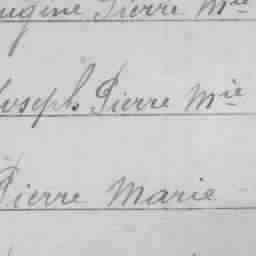 Eugène Pierre Mie
Joseph Pierre Mie
Pierre Marie